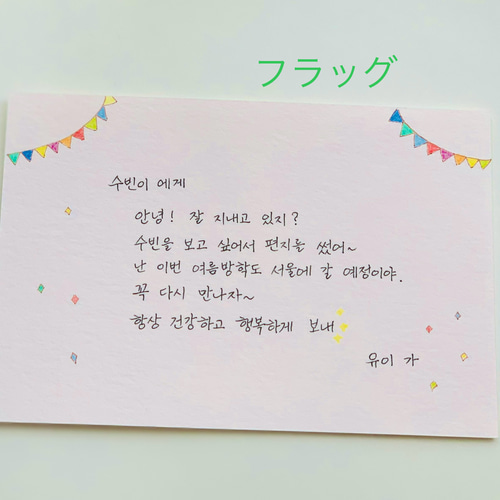 フラッグ
수빈이 에게
안녕! 잘 지내고 있지?
수빈을 보고 싶어서 편지를 썼어~
난 이번 여름방학도 서울에 갈 예정이야.
꼭 다시 만나자~
항상 건강하고 행복하게 보내
유이 가